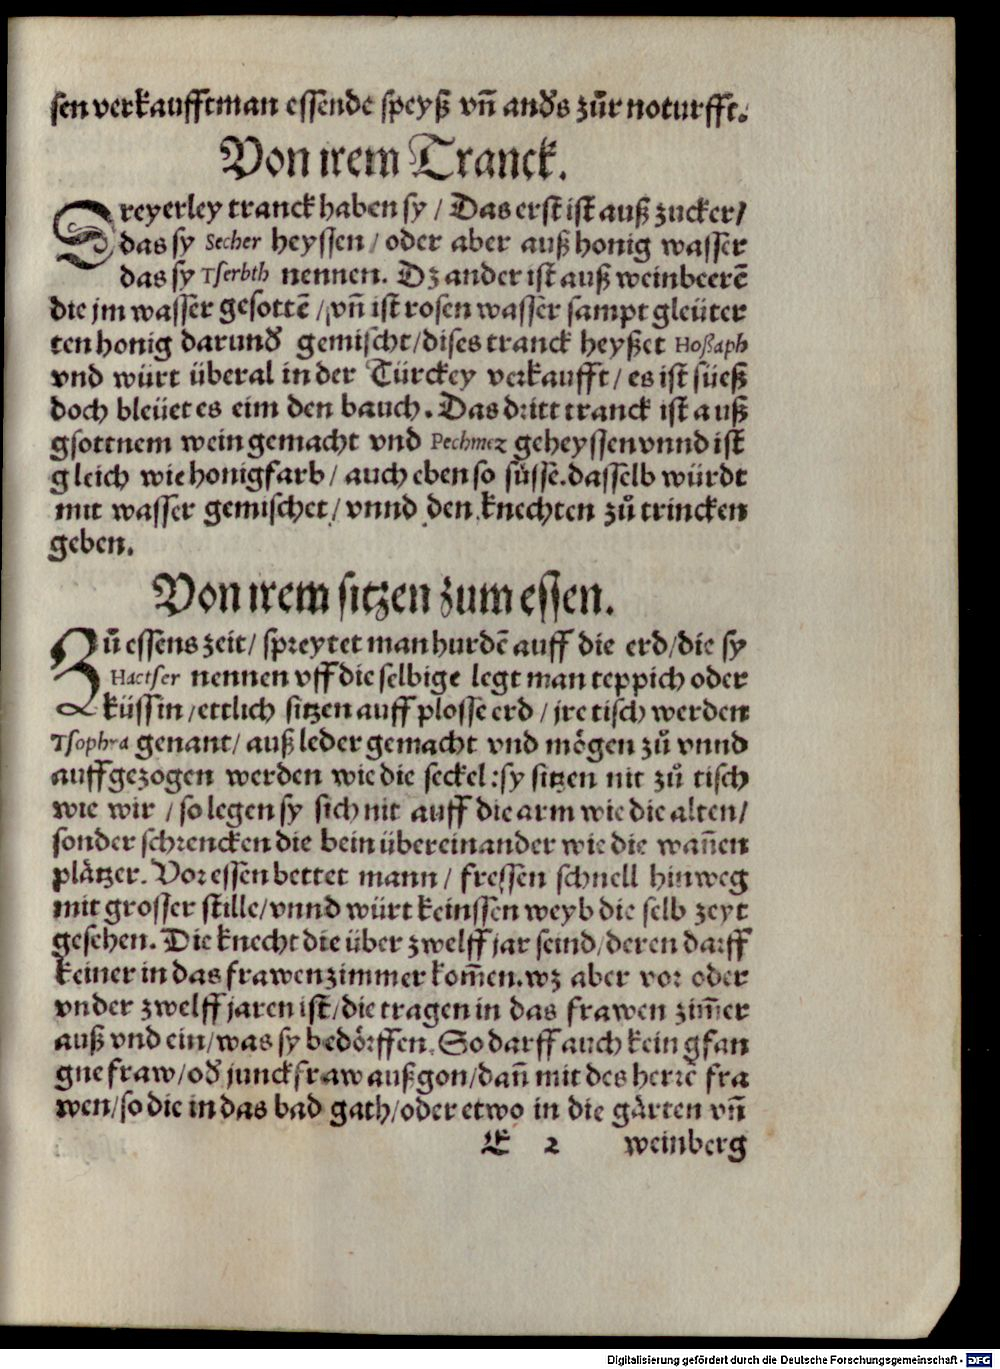 sen verkaufft man essende speyß vn̄ anđs zůr noturfft.
Von irem Tranck.
Dreyerley tranck haben sy / Das erst ist auß zucker /
das sy Secher heyssen / oder aber auß honig wasser
das sy Tserbth nennen. Dz ander ist auß weinbeerē
die jm wasser gesottē / vn̄ ist rosen wasser sampt gleüter
ten honig darunđ gemischt / dises tranck heyßet Hoßaph
vnd würt überal in der Türckey verkaufft / es ist süeß
doch bleüet es eim den bauch. Das dritt tranck ist auß
gsottnem wein gemacht vnd Pechmez geheyssen vnnd ist
gleich wie honigfarb / auch eben so süsse. dasselb würdt
mit wasser gemischet / vnnd den knechten zů trincken
geben.
Von irem sitzen zum essen.
Zů essens zeit / spreytet man hurdē auff die erd / die sy
Hactser nennen vff die selbige legt man teppich oder
küssin / ettlich sitzen auff plosse erd / jre tisch werden
Tsophra genant / auß leder gemacht vnd mögen zů vnnd
auffgezogen werden wie die seckel : sy sitzen nit zů tisch
wie wir / so legen sy sich nit auff die arm wie die alten /
sonder schrencken die bein übereinander wie die wan̄en
plätzer. Vor essen bettet mann / fressen schnell hinweg
mit grosser stille / vnnd würt keinssen weyb die selb zeyt
gesehen. Die knecht die über zwelff jar seind / deren darff
keiner in das frawenzimmer kom̄en. wz aber vor oder
vnder zwelff jaren ist / die tragen in das frawen zim̄er
auß vnd ein / was sy bedörffen. So darff auch kein gfan
gne fraw / ođ junckfraw außgon / dan̄ mit des herrē fra
wen / so die in das bad gath / oder etwo in die gärten vn̄
E 2 weinberg
Digitalisierung gefördert durch die Deutsche Forschungsgemeinschaft - DFG